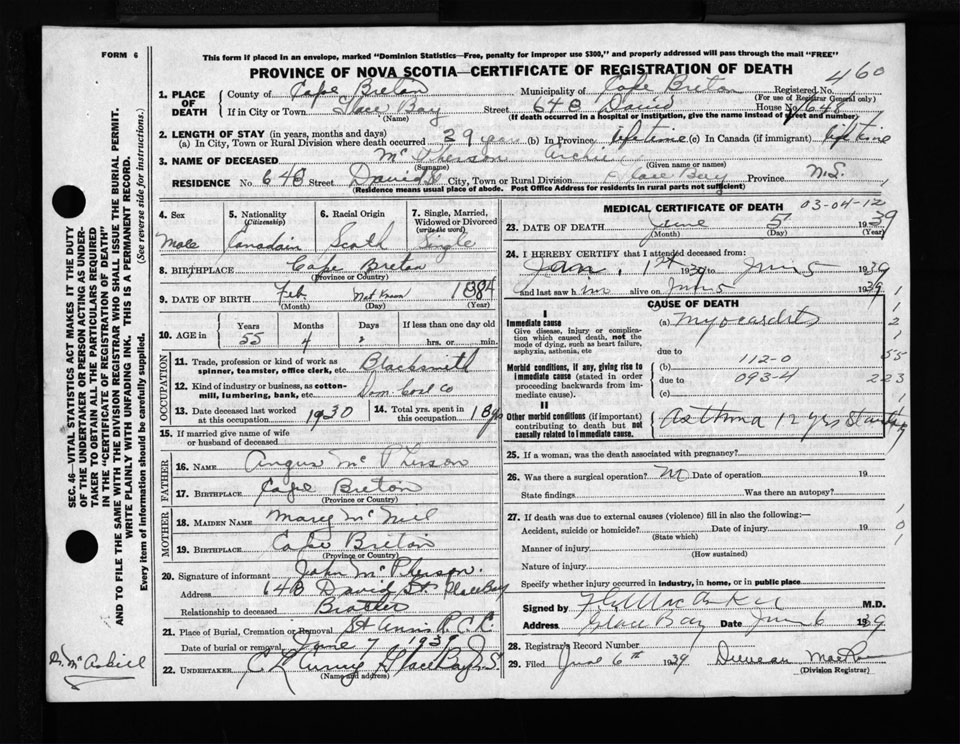 FORM 6
This form if placed in an envelope, marked "Dominion Statistics—Free, penalty for improper use $300," and properly addressed will pass through the mail "FREE"
PROVINCE OF NOVA SCOTIA—CERTIFICATE OF REGISTRATION OF DEATH
460
1. PLACE OF DEATH
County of Cape Breton Municipality of Cape Breton Registered No.
(For use of Registrar General only)
If in City or Town Glace Bay Street 648 David House No. 648
(Name) (If death occurred in a hospital or institution, give the name instead of street and number)
2. LENGTH OF STAY (in years, months and days)
(a) In City, Town or Rural Division where death occurred 29 years (b) In Province Lifetime (c) In Canada (if immigrant) Lifetime
3. NAME OF DECEASED McPherson Archie
(Surname) (Given name or names)
RESIDENCE No. 648 Street David St City, Town or Rural Division Glace Bay Province N.S.
(Residence means usual place of abode. Post Office Address for residents in rural parts not sufficient)
4. Sex Male
5. Nationality (Citizenship) Canadain
6. Racial Origin Scoth
7. Single, Married, Widowed or Divorced (write the word) Single
8. BIRTHPLACE Cape Breton
(Province or Country)
9. DATE OF BIRTH Feb. Not Known 1884
(Month) (Day) (Year)
10. AGE in Years Months Days If less than one day old
55 4 hrs. or min.
OCCUPATION
11. Trade, profession or kind of work as spinner, teamster, office clerk, etc. Blacksmith
12. Kind of industry or business, as cotton-mill, lumbering, bank, etc. Dom Coal Co
13. Date deceased last worked at this occupation 1930
14. Total yrs. spent in this occupation 18 yrs
15. If married give name of wife or husband of deceased
FATHER
16. NAME Angus McPherson
17. BIRTHPLACE Cape Breton
(Province or Country)
MOTHER
18. MAIDEN NAME Mary McNeil
19. BIRTHPLACE Cape Breton
(Province or Country)
20. Signature of informant John McPherson.
Address 648 David St. Glace Bay
Relationship to deceased Brother
21. Place of Burial, Cremation or Removal St Anns R.C.C.
Date of burial or removal June 7 1939
22. UNDERTAKER Glace Bay N.S.
(Name and address)
MEDICAL CERTIFICATE OF DEATH 03-04-12
23. DATE OF DEATH June 5 1939
(Month) (Day) (Year)
24. I HEREBY CERTIFY that I attended deceased from:
Jan. 1st 1939 to June 5 1939
and last saw him alive on June 5 1939
CAUSE OF DEATH
I
Immediate cause (a) Myocardits
Give disease, injury or complication which caused death, not the mode of dying, such as heart failure, asphyxia, asthenia, etc
due to
Morbid conditions, if any, giving rise to immediate cause (stated in order proceeding backwards from immediate cause).
(b) 112-0
due to 093-4
(c)
II
Other morbid conditions (if important) contributing to death but not causally related to immediate cause.
Asthma 12 yrs
25. If a woman, was the death associated with pregnancy?
26. Was there a surgical operation? Date of operation 19
State findings Was there an autopsy?
27. If death was due to external causes (violence) fill in also the following:—
Accident, suicide or homicide? Date of injury 19
(State which)
Manner of injury
(How sustained)
Nature of injury
Specify whether injury occurred in industry, in home, or in public place
Signed by M.D.
Address Glace Bay Date June 6 1939
28. Registrar's Record Number
29. Filed June 6th 1939 Duncan MacRae
(Division Registrar)
SEC. 46—VITAL STATISTICS ACT MAKES IT THE DUTY
OF THE UNDERTAKER OR PERSON ACTING AS UNDER-
TAKER TO OBTAIN ALL THE PARTICULARS REQUIRED
IN THE "CERTIFICATE OF REGISTRATION OF DEATH"
AND TO FILE THE SAME WITH THE DIVISION REGISTRAR WHO SHALL ISSUE THE BURIAL PERMIT.
WRITE PLAINLY WITH UNFADING INK. THIS IS A PERMANENT RECORD.
Every item of information should be carefully supplied. (See reverse side for instructions.)
Dr. McAskill